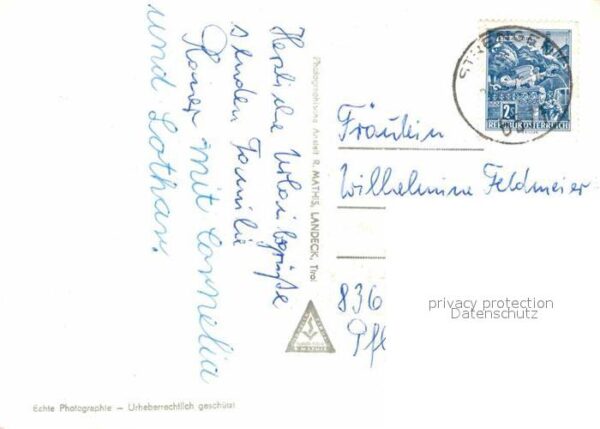 Herzliche Urlaubsgrüße
senden Familie
Rainer mit Cornelia
und Lothar.
Photographische Anstalt R. MATHIS, LANDECK, Tirol
R. MATHIS
STRENGEN
2 S
REPUBLIK ÖSTERREICH
Fräulein
Wilhelmine Feldmeier
836
Pff
privacy protection
Datenschutz
Echte Photographie – Urheberrechtlich geschützt